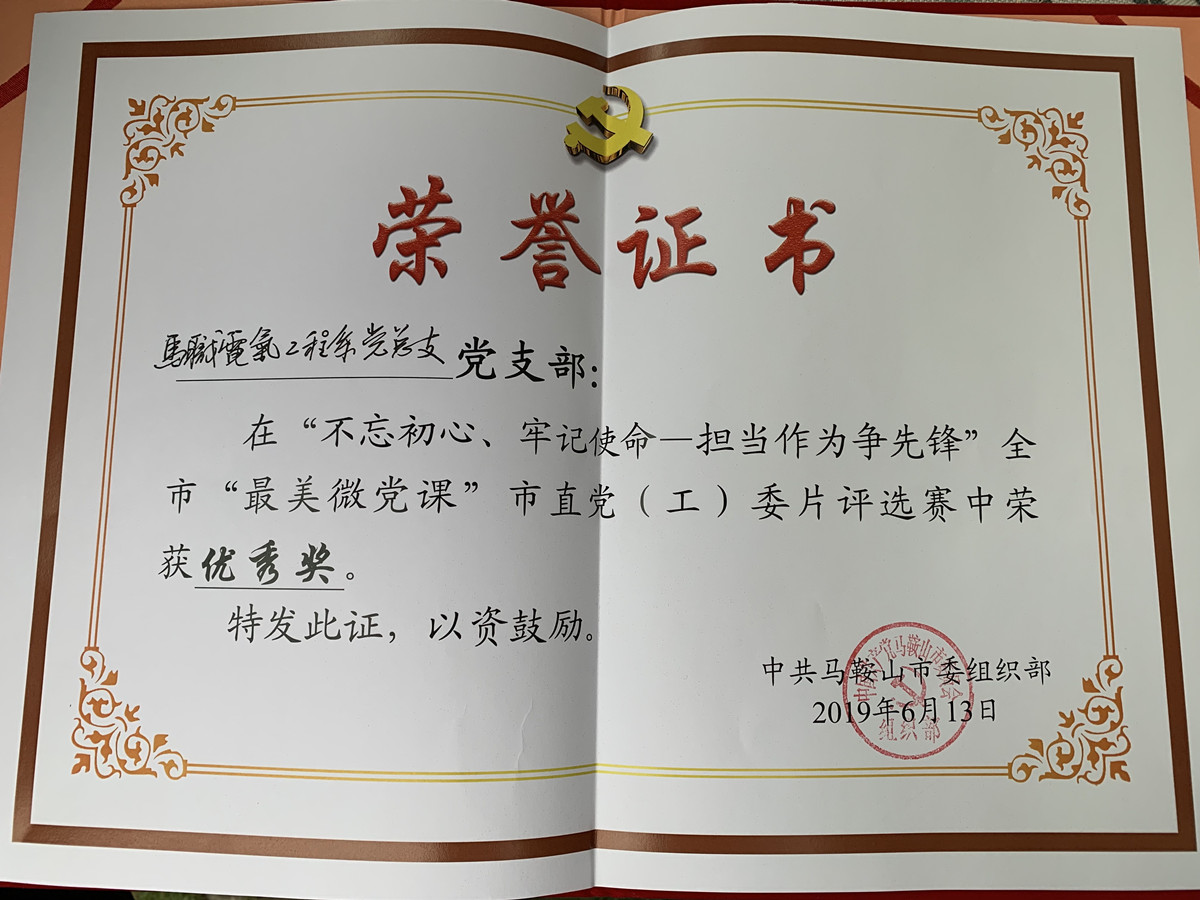 荣誉证书
馬職電氣工程系党总支党支部：
在“不忘初心、牢记使命—担当作为争先锋”全
市“最美微党课”市直党（工）委片评选赛中荣
获优秀奖。
特发此证，以资鼓励。
中共马鞍山市委组织部
2019年6月13日
中国共产党马鞍山市委员会
组织部